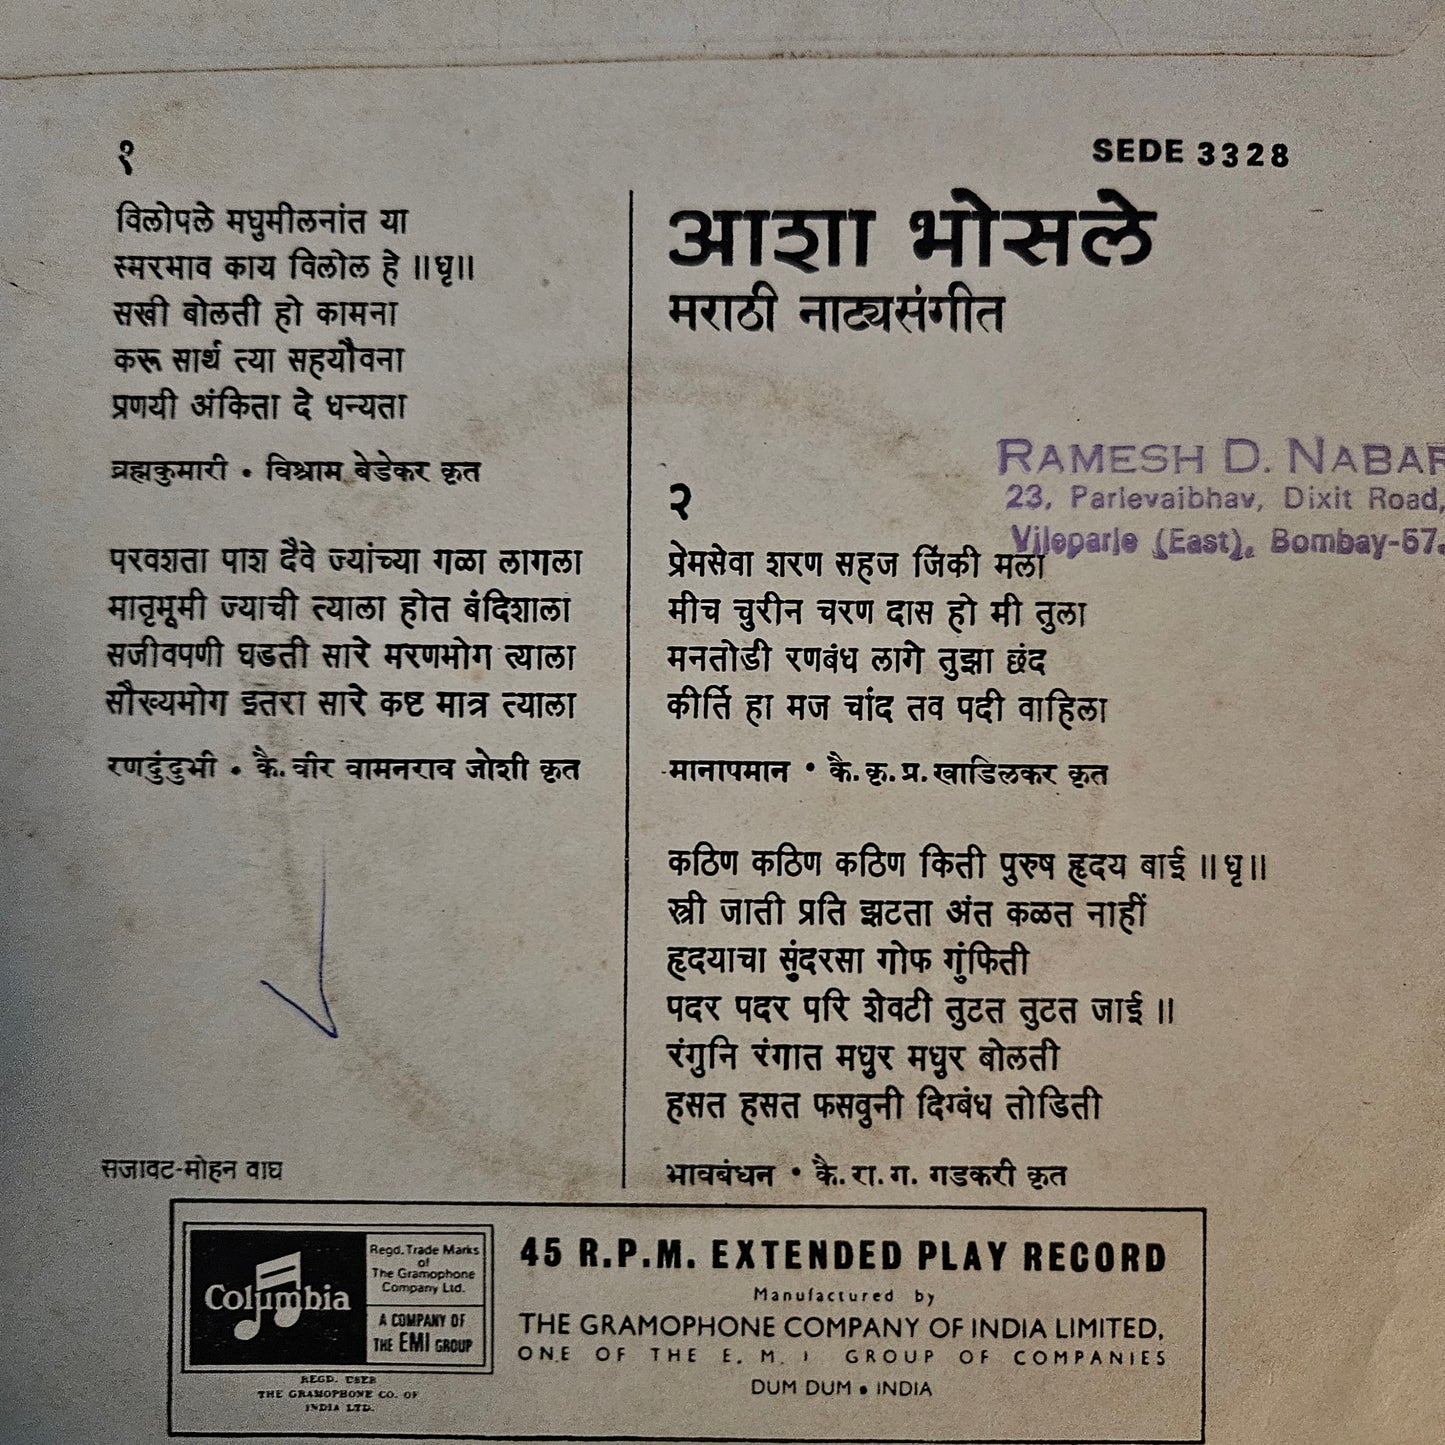 १
विलोपले मधुमीलनांत या
स्मरभाव काय विलोल हे ॥धृ॥
सखी बोलती हो कामना
करू सार्थ त्या सहयौवना
प्रणयी अंकिता दे धन्यता
ब्रह्मकुमारी • विश्राम बेडेकर कृत
परवशता पाश दैवे ज्यांच्या गळा लागला
मातृभूमी ज्याची त्याला होत बंदिशाला
सजीवपणी घडती सारे मरणभोग त्याला
सौख्यभोग इतरा सारे कष्ट मात्र त्याला
रणदुंदुभी • कै. वीर वामनराव जोशी कृत
सजावट-मोहन वाघ
SEDE 3328
आशा भोसले
मराठी नाट्यसंगीत
RAMESH D. NABAR
23, Parlevaibhav, Dixit Road,
Vileparle (East), Bombay-57.
२
प्रेमसेवा शरण सहज जिंकी मला
मीच चुरीन चरण दास हो मी तुला
मनतोडी रणबंध लागे तुझा छंद
कीर्ति हा मज चांद तव पदी वाहिला
मानापमान • कै. कृ. प्र. खाडिलकर कृत
कठिण कठिण कठिण किती पुरुष हृदय बाई ॥धृ॥
स्त्री जाती प्रति झटता अंत कळत नाहीं
हृदयाचा सुंदरसा गोफ गुंफिती
पदर पदर परि शेवटी तुटत तुटत जाई ॥
रंगुनि रंगात मधुर मधुर बोलती
हसत हसत फसवुनी दिग्बंध तोडिती
भावबंधन • कै. रा. ग. गडकरी कृत
Columbia
Regd. Trade Marks
of
The Gramophone
Company Ltd.
A COMPANY OF
THE EMI GROUP
REGD. USER
THE GRAMOPHONE CO. OF
INDIA LTD.
45 R.P.M. EXTENDED PLAY RECORD
Manufactured by
THE GRAMOPHONE COMPANY OF INDIA LIMITED,
ONE OF THE E. M. I GROUP OF COMPANIES
DUM DUM • INDIA